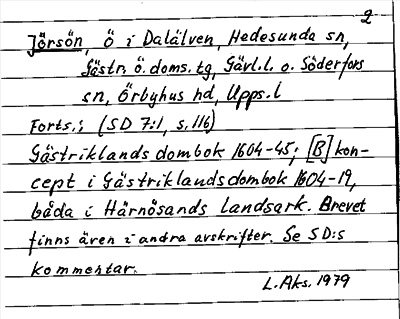 2
Jörsön, ö i Dalälven, Hedesunda sn,
Gästr. ö. doms. tg, Gävl.l. o. Söderfors
sn, Örbyhus hd, Upps.l
Forts.; (SD 7:1, s. 116)
Gästriklands dombok 1604-45; [B] kon-
cept i Gästriklands dombok 1604-19,
båda i Härnösands landsark. Brevet
finns även i andra avskrifter. Se SD:s
kommentar.
L. Aks. 1979